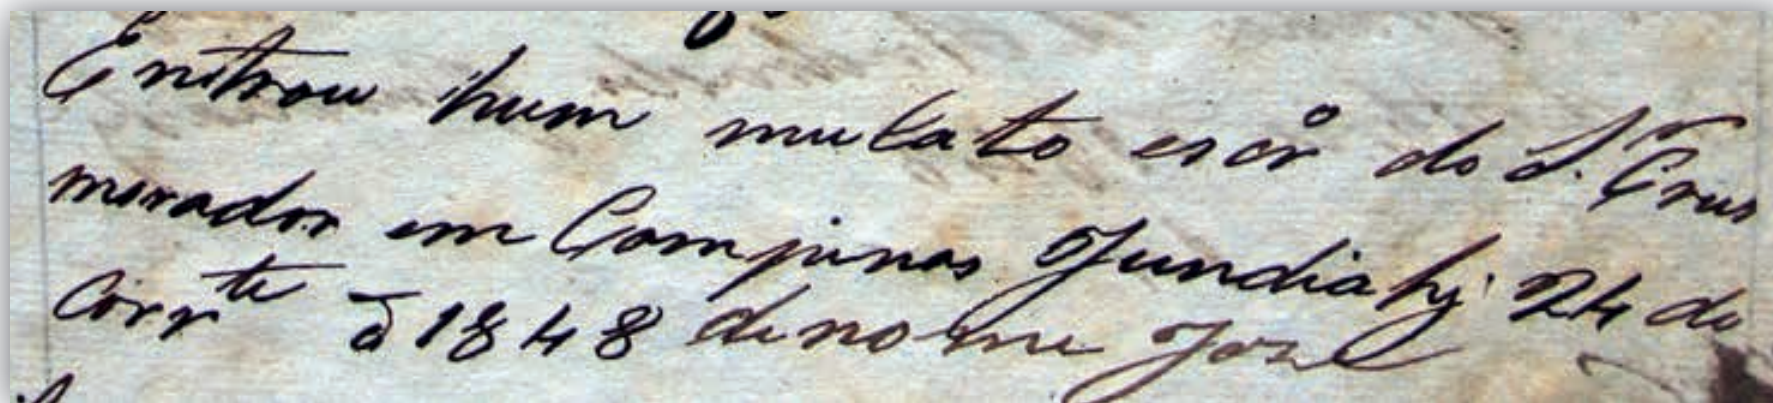 Entrou hum mulato escrº do S. Crus
morador em Campinas Jundiahy 24 do
Corrte d 1848 de nome José